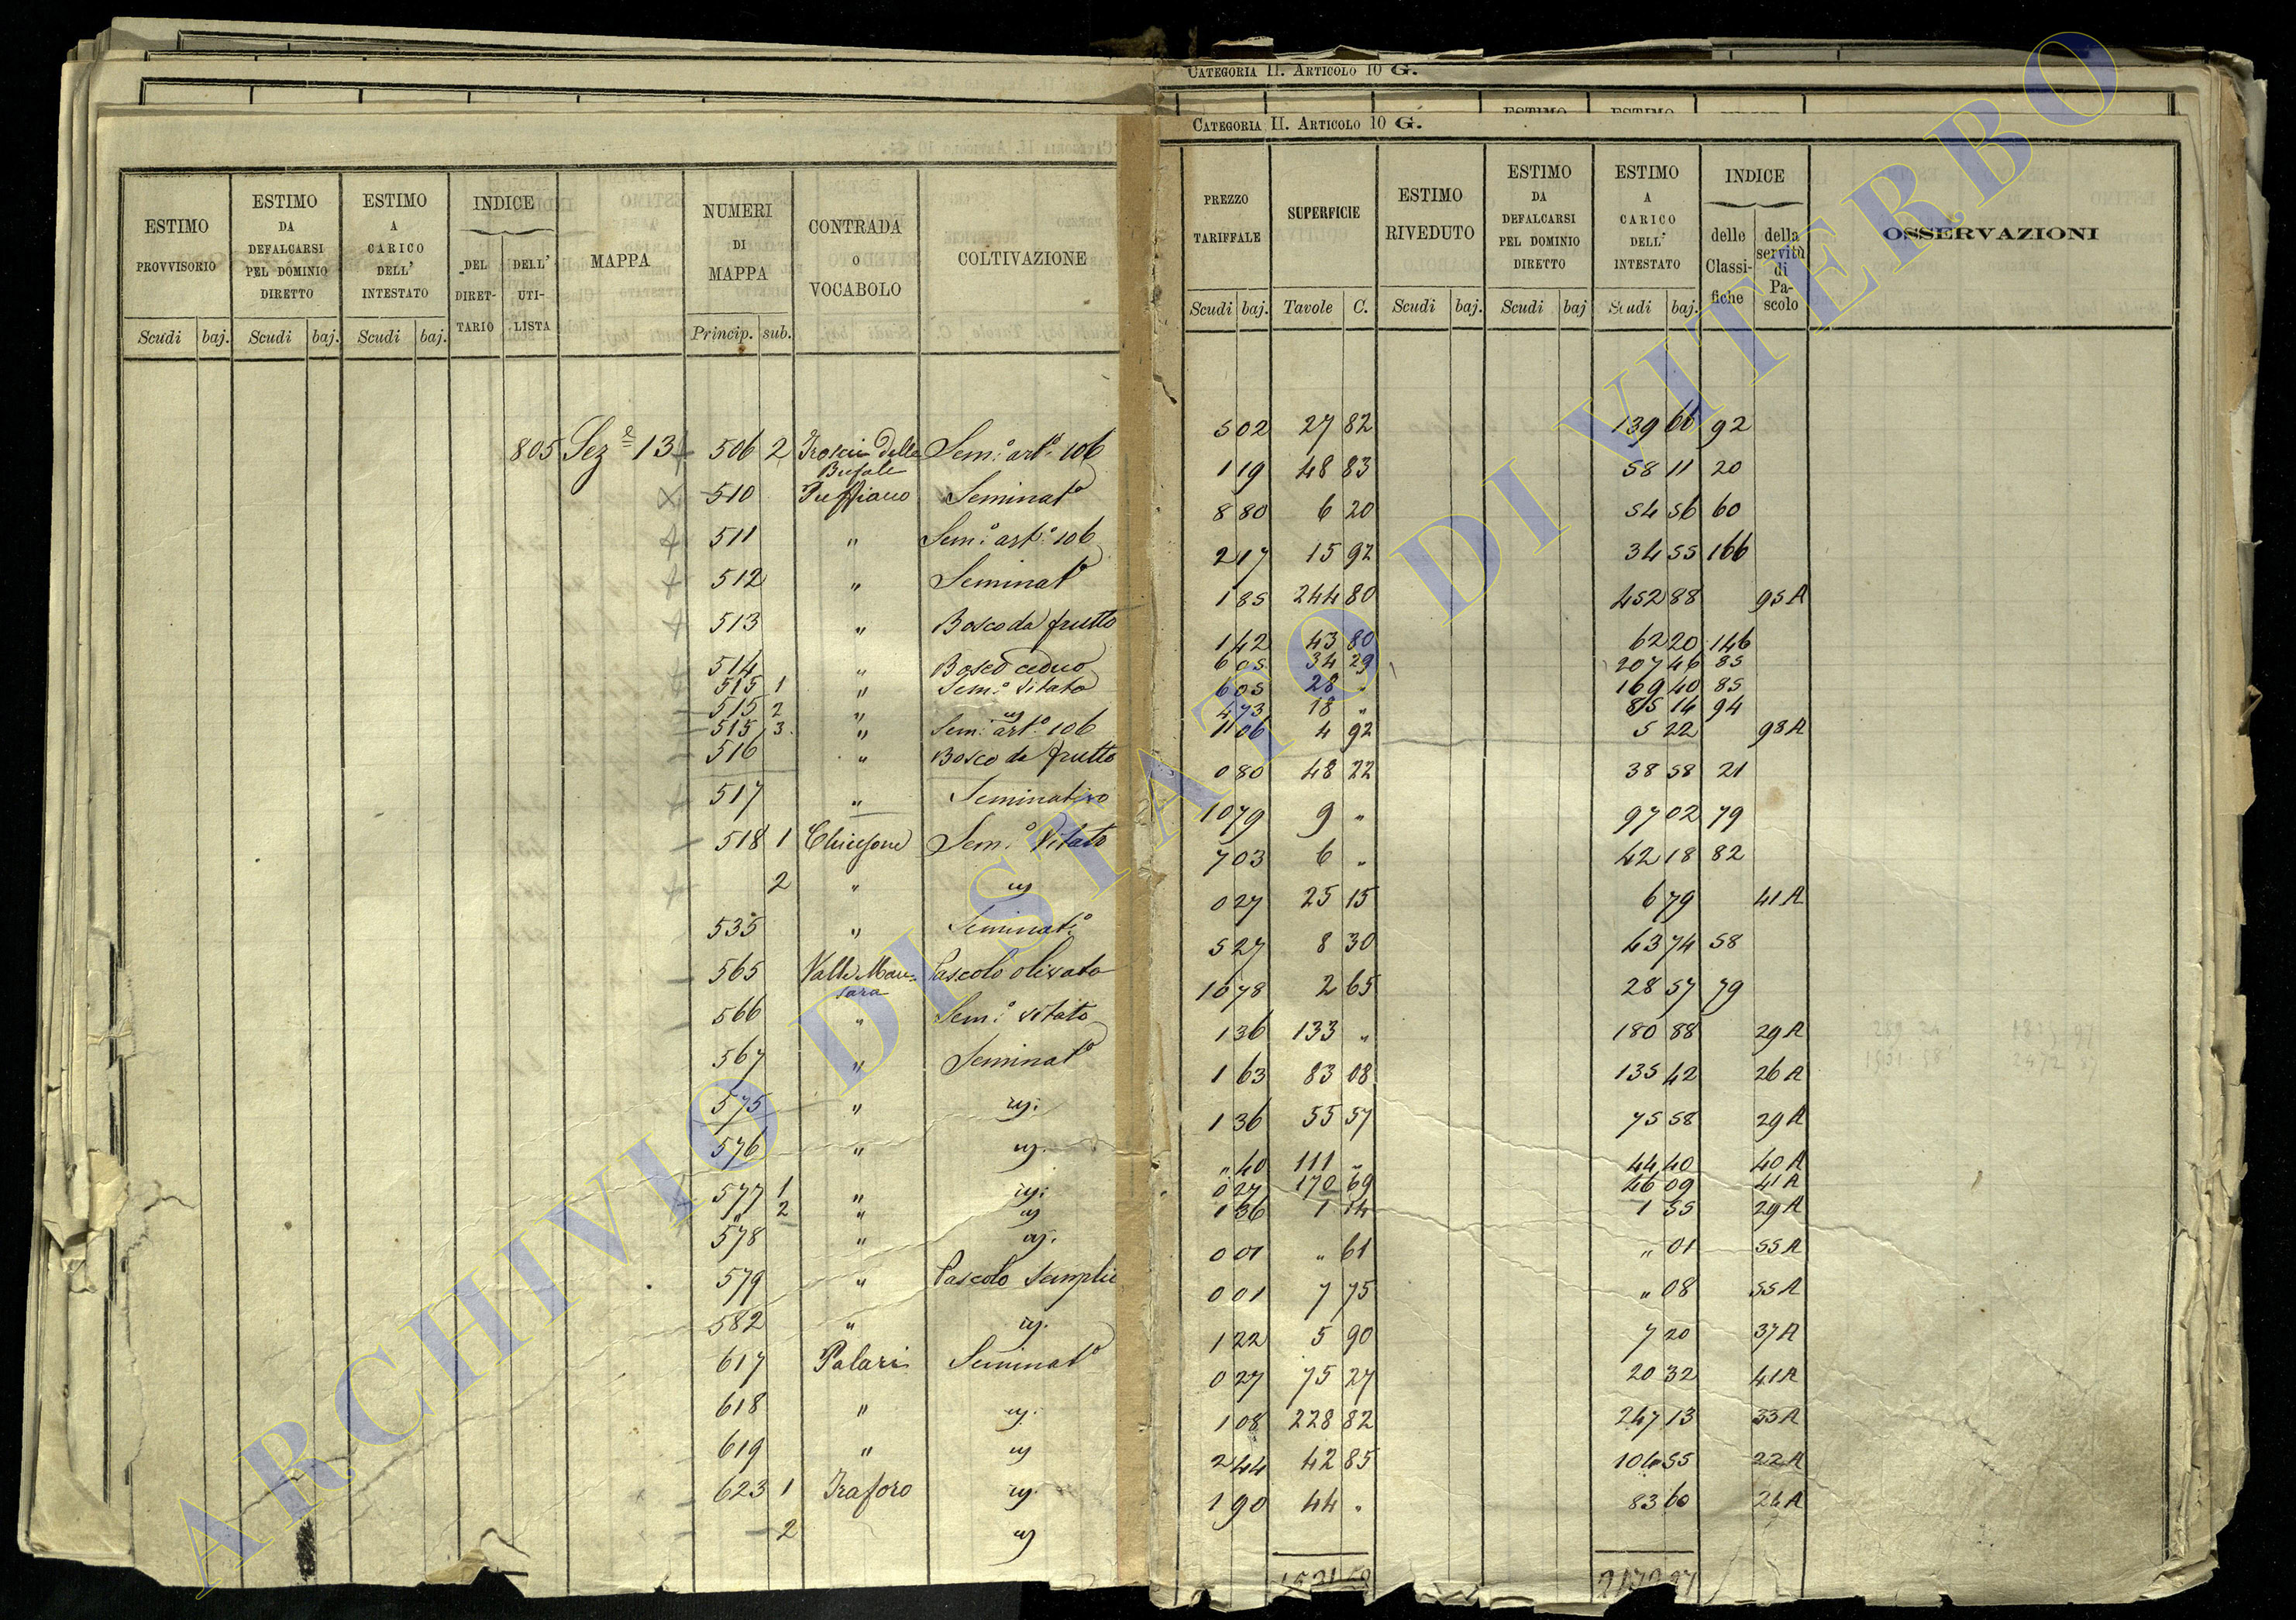 CATEGORIA II. ARTICOLO 10 G.
CATEGORIA II. ARTICOLO 10 G.
ESTIMO PROVVISORIO Scudi baj.
ESTIMO DA DEFALCARSI PEL DOMINIO DIRETTO Scudi baj.
ESTIMO A CARICO DELL' INTESTATO Scudi baj.
INDICE DEL DIRETTARIO DELL' UTILISTA
MAPPA
NUMERI DI MAPPA Princip. sub.
CONTRADA O VOCABOLO
COLTIVAZIONE
805 Sez e 13 506 2 Troscii delle Bufale Sem: art: 106
510 Puffiano Seminato
511 " Sem: art: 106
512 " Seminato
513 " Bosco da frutto
514 " Bosco ceduo
515 1 " Sem: Vitato
515 2 " id
515 3 " Sem: art: 106
516 " Bosco da frutto
517 " Seminativo
518 1 Sem: Vitato
2 " id
535 " Seminato
565 Valle Pascolo olivato
566 " Sem: vitato
567 " Seminato
575 " id:
576 " id.
577 1 " id:
" 2 " id
578 " id.
579 " Pascolo Semplic
582 " id.
617 Palari Seminato
618 " id.
619 " id
623 1 Traforo id.
2 id
PREZZO TARIFFALE Scudi baj.
SUPERFICIE Tavole C.
ESTIMO RIVEDUTO Scudi baj.
ESTIMO DA DEFALCARSI PEL DOMINIO DIRETTO Scudi baj
ESTIMO A CARICO DELL' INTESTATO Scudi baj.
INDICE delle Classifiche della servitù di Pascolo
OSSERVAZIONI
5 02 27 82 139 66 92
1 19 48 83 58 11 20
8 80 6 20 54 56 60
2 17 15 92 34 55 166
1 85 244 80 452 88 95 A
1 42 43 80 62 20 146
6 05 34 29 207 46 85
6 05 28 " 169 40 85
4 73 18 " 85 14 94
1 06 4 92 5 22 98 A
0 80 48 22 38 58 21
10 79 9 " 97 02 79
7 03 6 " 42 18 82
0 27 25 15 6 79 41 A
5 27 8 30 43 74 58
10 78 2 65 28 57 79
1 36 133 " 180 88 29 A
1 63 83 08 135 42 26 A
1 36 55 57 75 58 29 A
" 40 111 " 44 40 40 A
0 27 170 69 46 09 41 A
1 36 1 14 1 55 29 A
0 01 " 61 " 01 55 A
0 01 7 75 " 08 55 A
1 22 5 90 7 20 37 A
0 27 75 27 20 32 41 A
1 08 228 82 247 13 33 A
2 44 42 85 104 55 22 A
1 90 44 " 83 60 24 A
ARCHIVIO DI STATO DI VITERBO